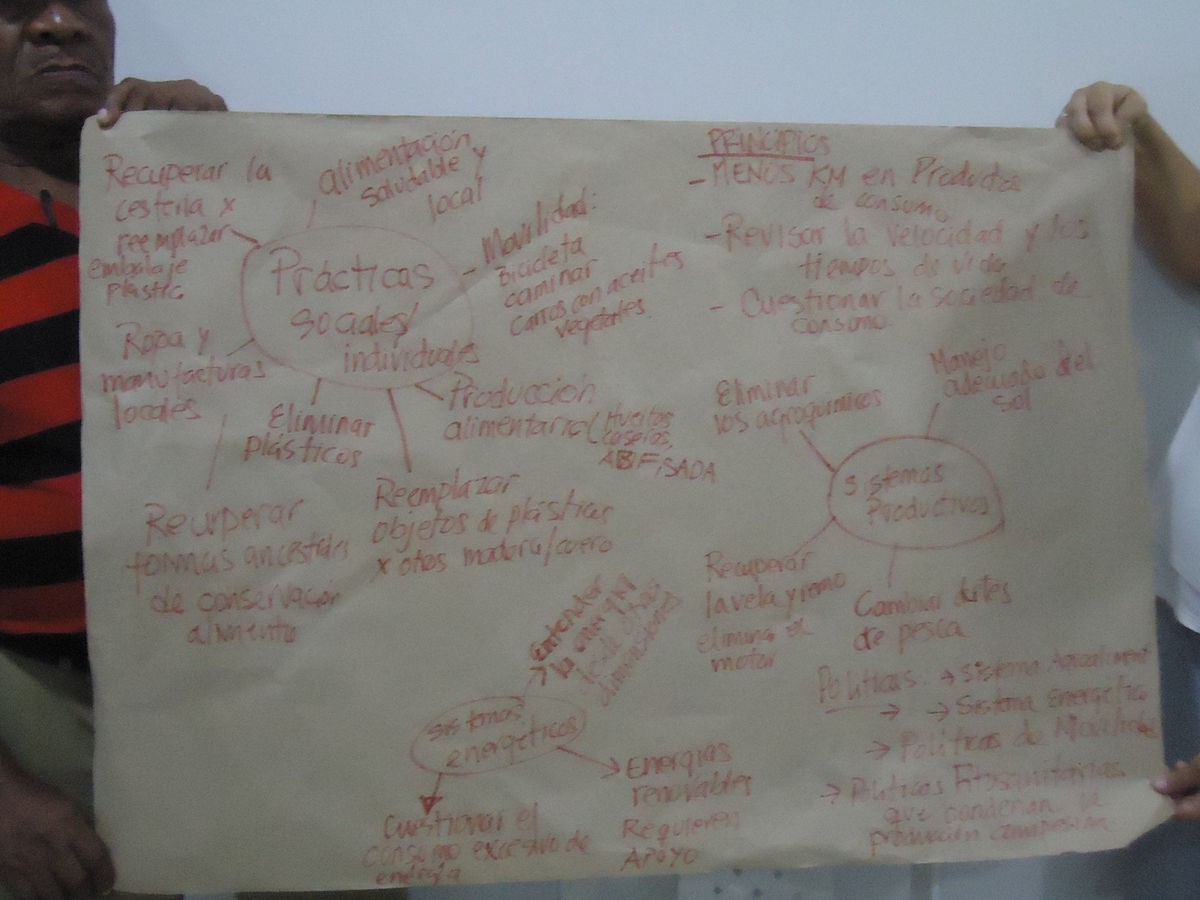 Recuperar la
cesteria x
reemplazar
embalaje
plastic
alimentación y
saludable
local
Prácticas
sociales/
individuales
- Movilidad:
Bicicleta
caminar
Carros con aceites
vegetales.
Ropa y
manufacturas
locales
Eliminar
plásticos
Producción
alimentaria (Huertos
caseros,
SADA
Recuperar
formas ancestrales
de conservación
alimento
Reemplazar
objetos de plásticas
x otros madera/cuero
PRINCIPIOS
- MENOS KM en Productos
de consumo
- Revisar la velocidad y los
tiempos de vida
- Cuestionar la sociedad de
consumo
Eliminar
los agroquimicos
Manejo
adecuado del
Sistemas
Productivos
Recuperar
la vela y remo
eliminar el
motor
Cambiar artes
de pesca
Sistemas
energéticos
Entender
la energia
desde otras
dimensiones
→ Energias
renovables
Requieren
APOYO
Cuestionar el
consumo excesivo de
energia
Politicas → Sistema Agroaliment
→ → Sistema Energetico
→ Politicas de Movilidad
→ Politicas Fitosanitarias
que condenan la
producción campesina